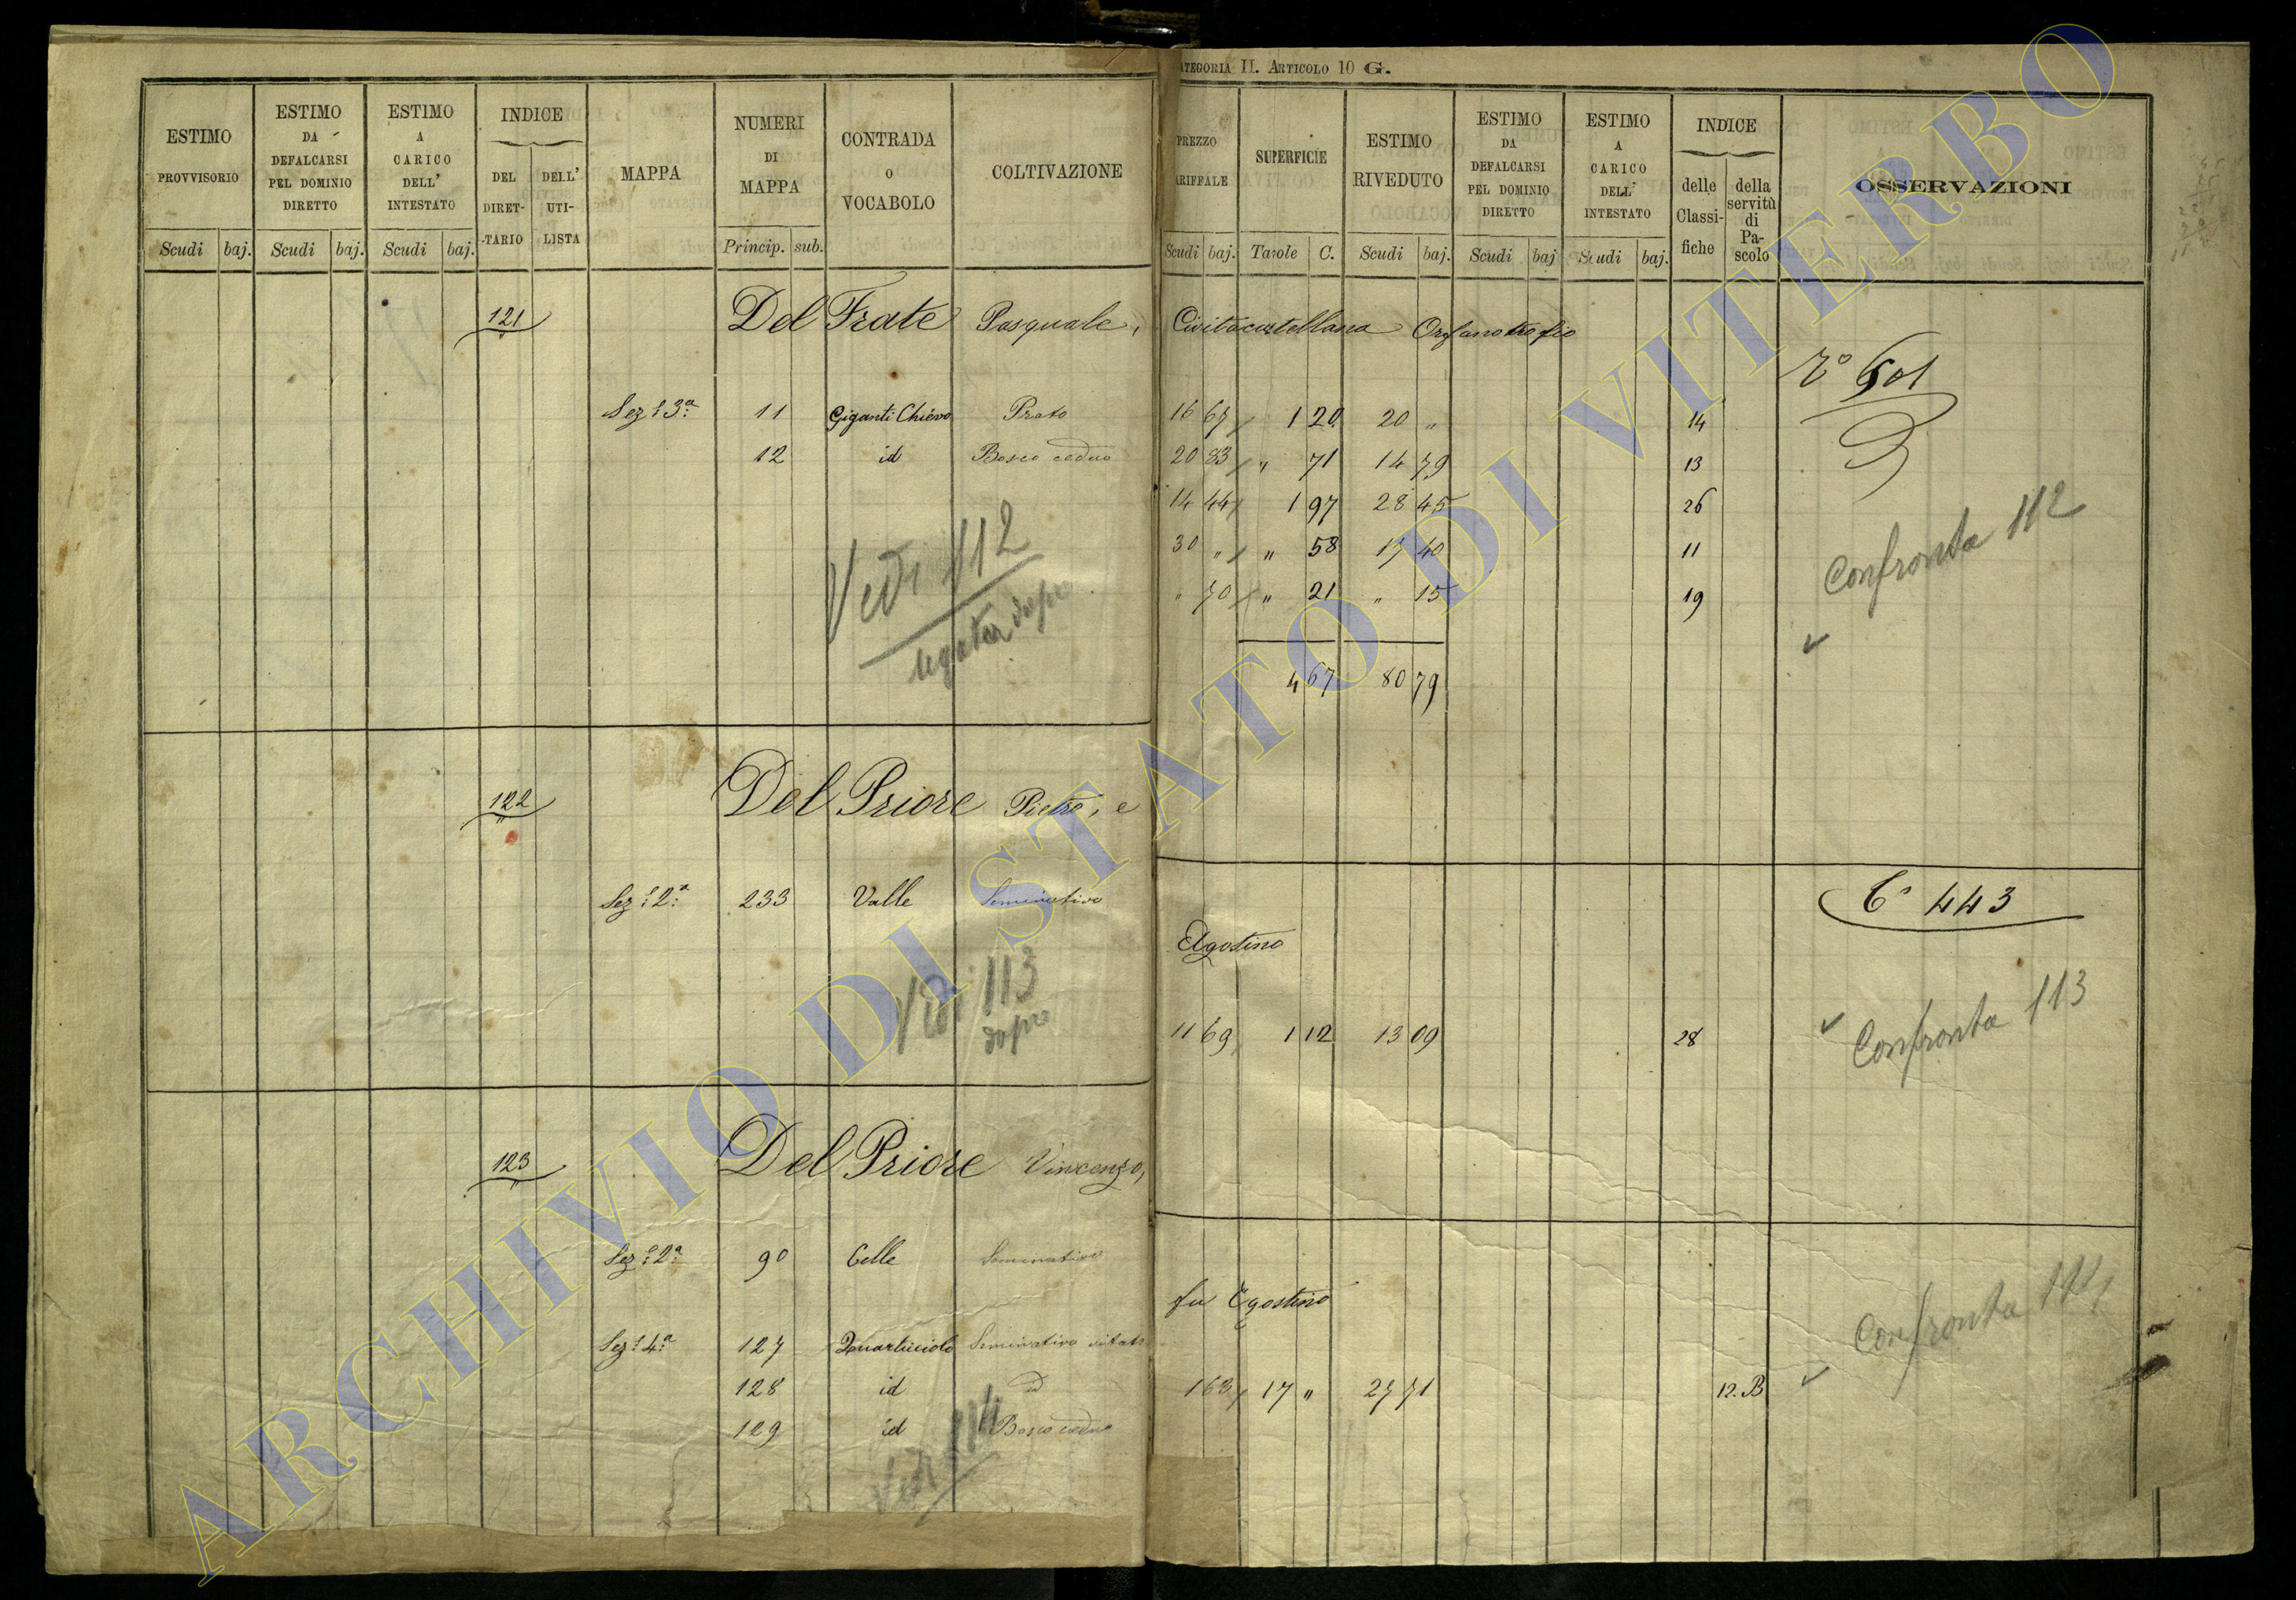 CATEGORIA II. ARTICOLO 10 G.
ESTIMO PROVVISORIO
Scudi baj.
ESTIMO DA DEFALCARSI PEL DOMINIO DIRETTO
Scudi baj.
ESTIMO A CARICO DELL' INTESTATO
Scudi baj.
INDICE
DEL DIRET-TARIO
DELL' UTI-LISTA
MAPPA
NUMERI DI MAPPA
Princip. sub.
CONTRADA O VOCABOLO
COLTIVAZIONE
121 Del Frate Pasquale,
Sez: 3ª 11 Giganti Chiévo Prato
12 id Bosco ceduo
Vedi 112
122 Del Priore Pietro, e
Sez: 2ª 233 Valle Seminativo
Vedi 113
dopo
123 Del Priore Vincenzo,
Sez: 2ª 90 Celle Seminativo
Sez: 4ª 127 Quarticciolo Seminativo vitato
128 id id
129 id Bosco ceduo
Vedi 114
PREZZO TARIFFALE
Scudi baj.
SUPERFICIE
Tavole C.
ESTIMO RIVEDUTO
Scudi baj.
ESTIMO DA DEFALCARSI PEL DOMINIO DIRETTO
Scudi baj
ESTIMO A CARICO DELL' INTESTATO
Scudi baj.
INDICE
delle Classi-fiche
della servitù di Pa-scolo
OSSERVAZIONI
Civitacastellana Orfanotrofio
601
16 67 1 20 20 " 14
20 83 " 71 14 79 13
14 44 1 97 28 45 26
30 " " 58 17 40 11
" 70 " 21 " 15 19
4 67 80 79
Confronta 112
443
Agostino
11 69 1 12 13 09 28
Confronta 113
fu Agostino
1 63 17 " 27 71 12. B
Confronta 114
ARCHIVIO DI STATO DI VITERBO